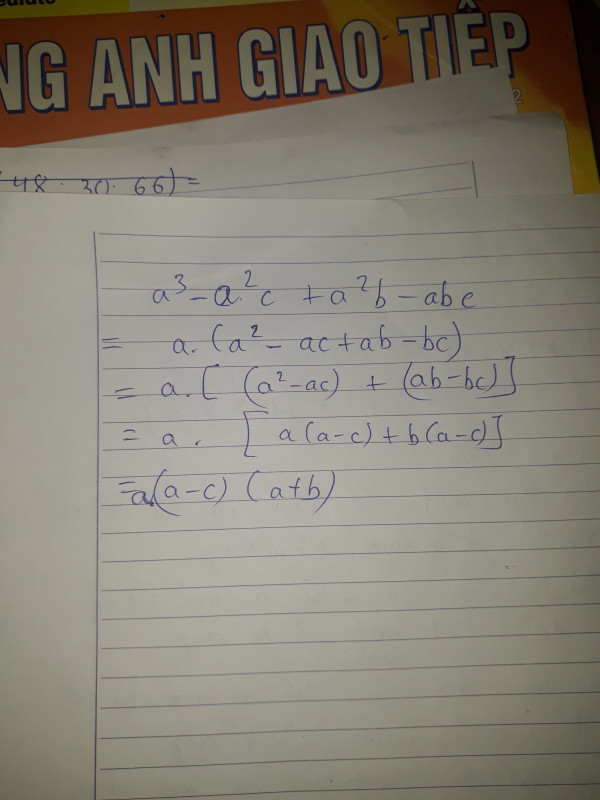 NG ANH GIAO TIẾP
2
48 . 30 . 66) =
a³ - a.²c + a²b - abc
= a. (a² - ac + ab - bc)
= a. [ (a² - ac) + (ab - bc) ]
= a . [ a (a - c) + b (a - c) ]
= a. (a - c) (a + b)